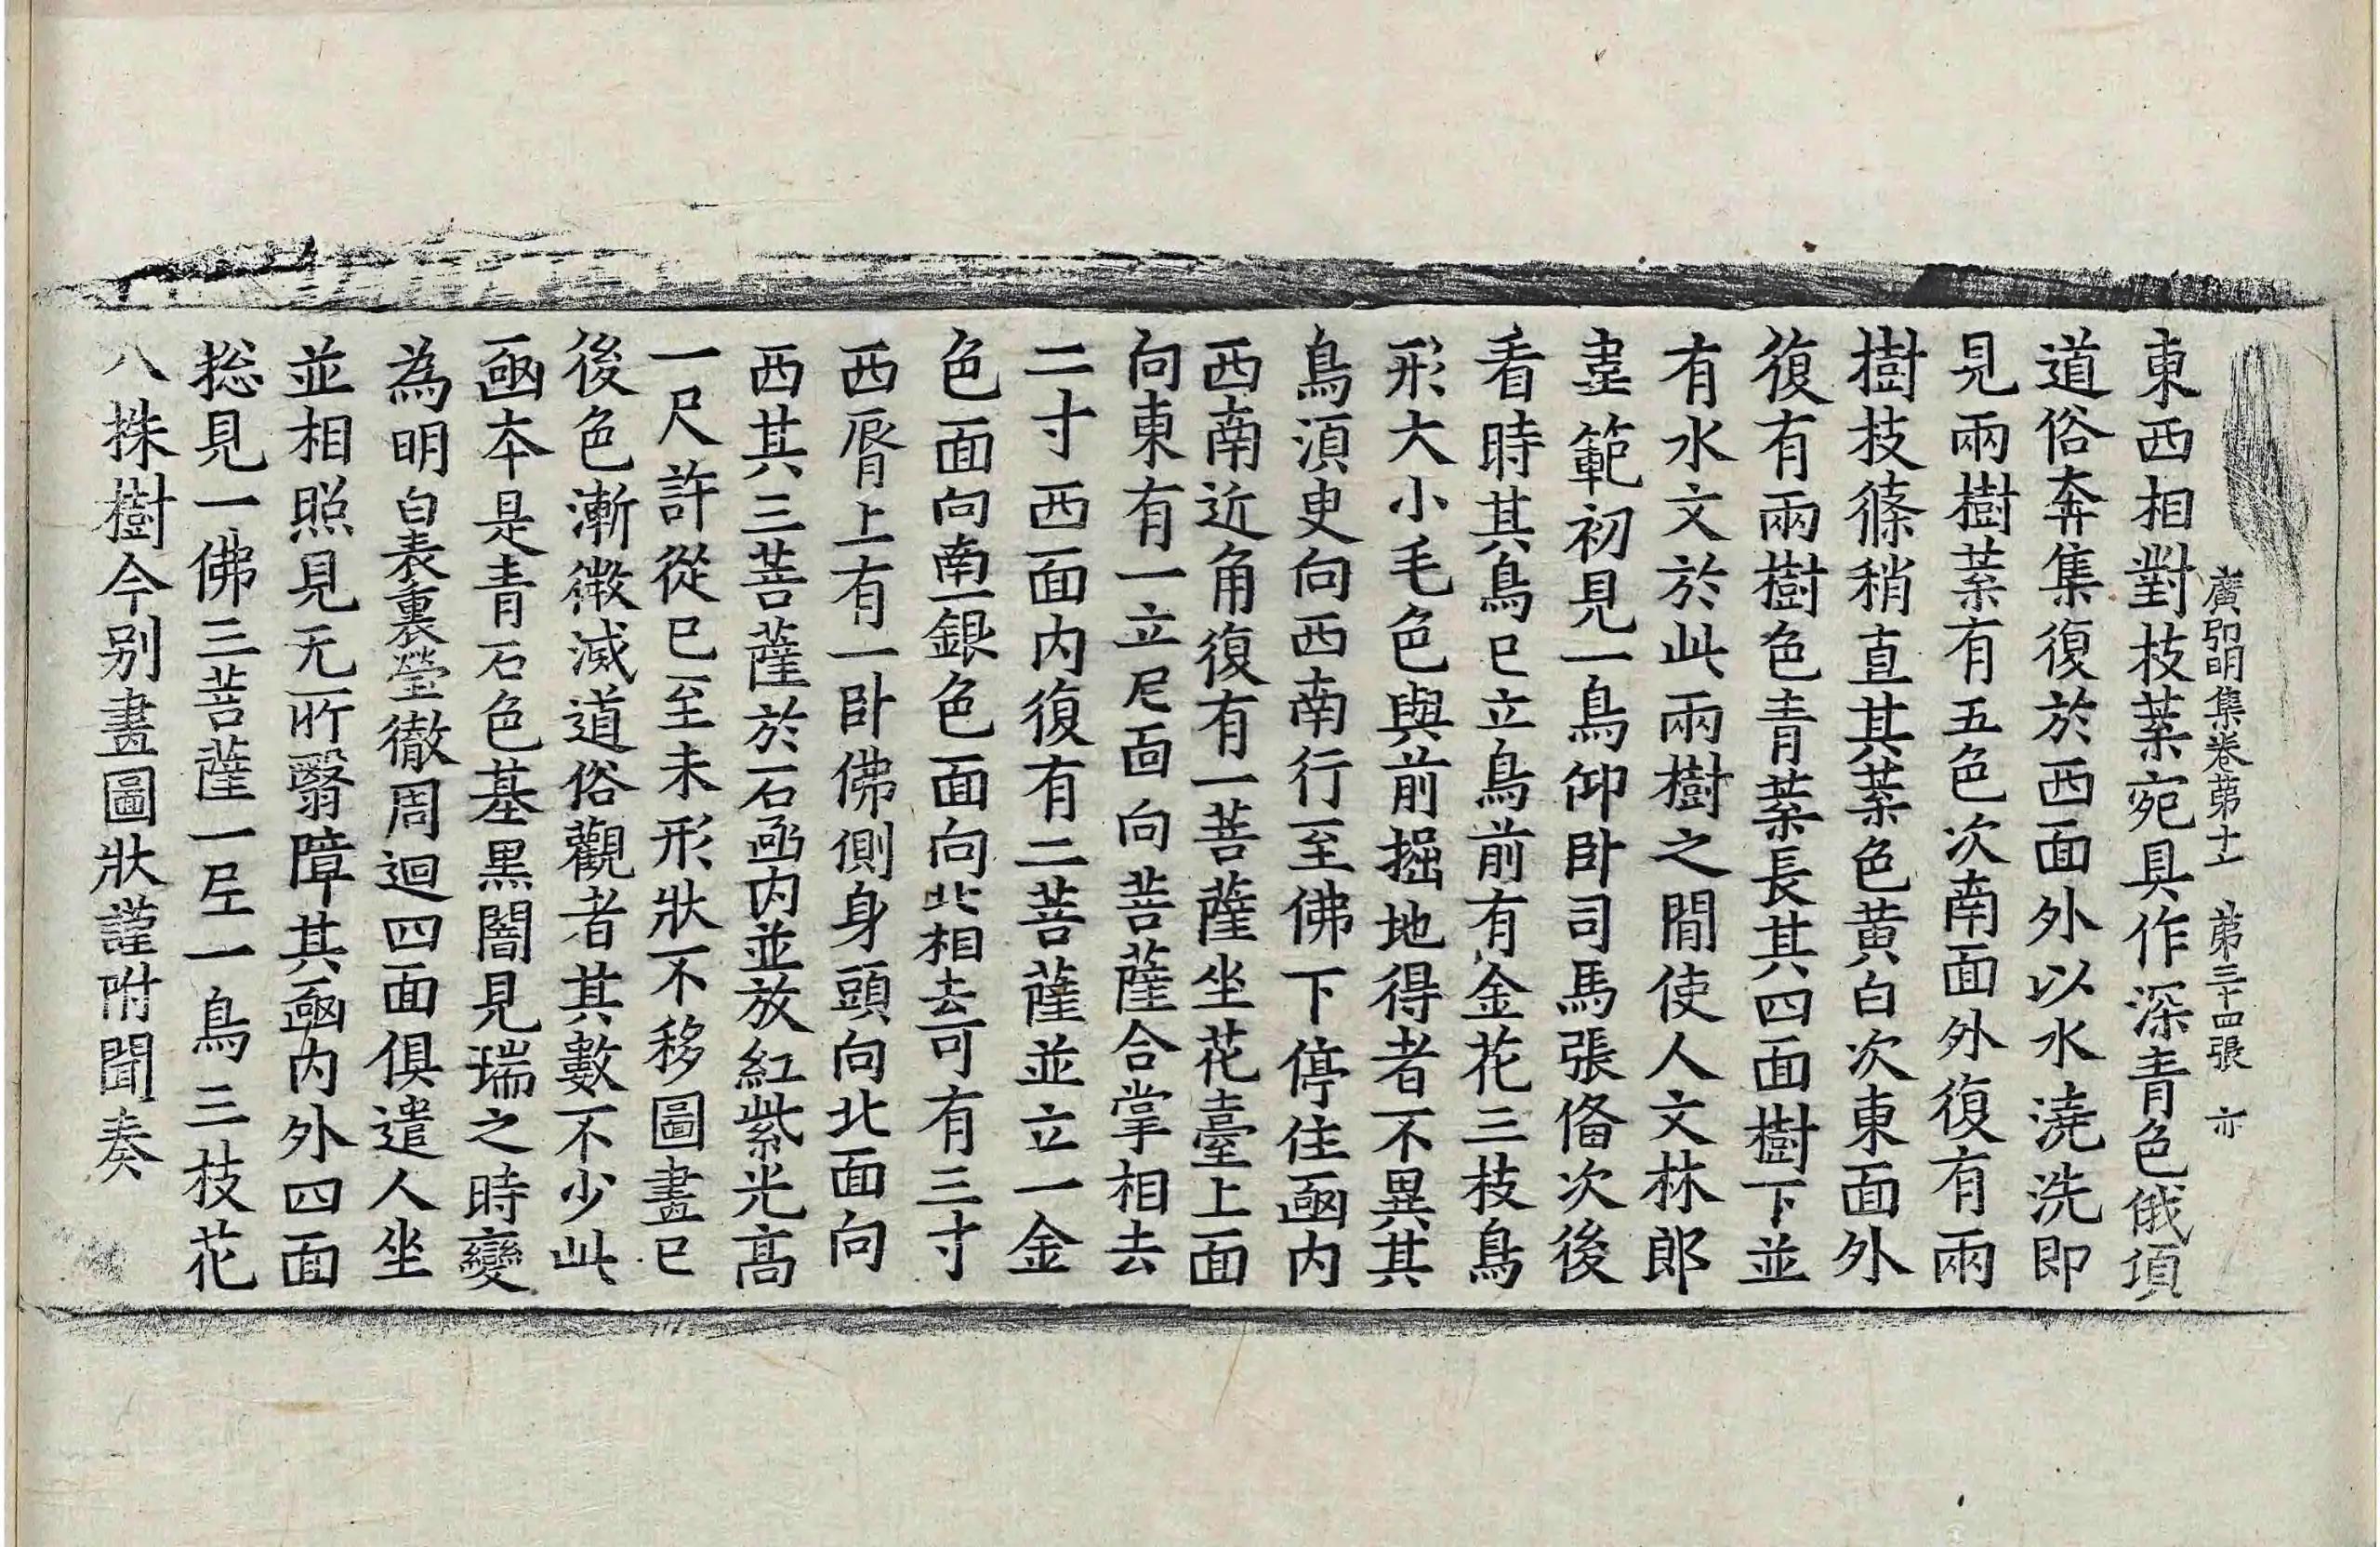 廣弘明集卷苐十七 苐三十四張 亦
東西相對枝葉宛具作深青色俄頃
道俗奔集復於西面外以水澆洗即
見兩樹葉有五色次南面外復有兩
樹枝篠稍直其葉色黄白次東面外
復有兩樹色青葉長其四面樹下並
有水文於此兩樹之間使人文林郎
韋範初見一鳥仰卧司馬張俻次後
看時其鳥已立鳥前有金花三枝鳥
形大小毛色與前掘地得者不異其
鳥湏臾向西南行至佛下停住凾内
西南近角復有一菩薩坐花臺上面
向東有一立尼面向菩薩合掌相去
二寸西面内復有二菩薩並立一金
色面向南一銀色面向北相去可有三寸
西脣上有一卧佛側身頭向北面向
西其三菩薩於石凾内並放紅紫光髙
一尺許從巳至未形狀不移圖畫已
後色漸微滅道俗觀者其數不少此
凾本是青石色基黒闇見瑞之時變
為明白表裏瑩徹周迴四面俱遣人坐
並相照見无所翳障其凾内外四面
捴見一佛三菩薩一尼一鳥三枝花
八株樹今别畫圖狀謹附聞奏